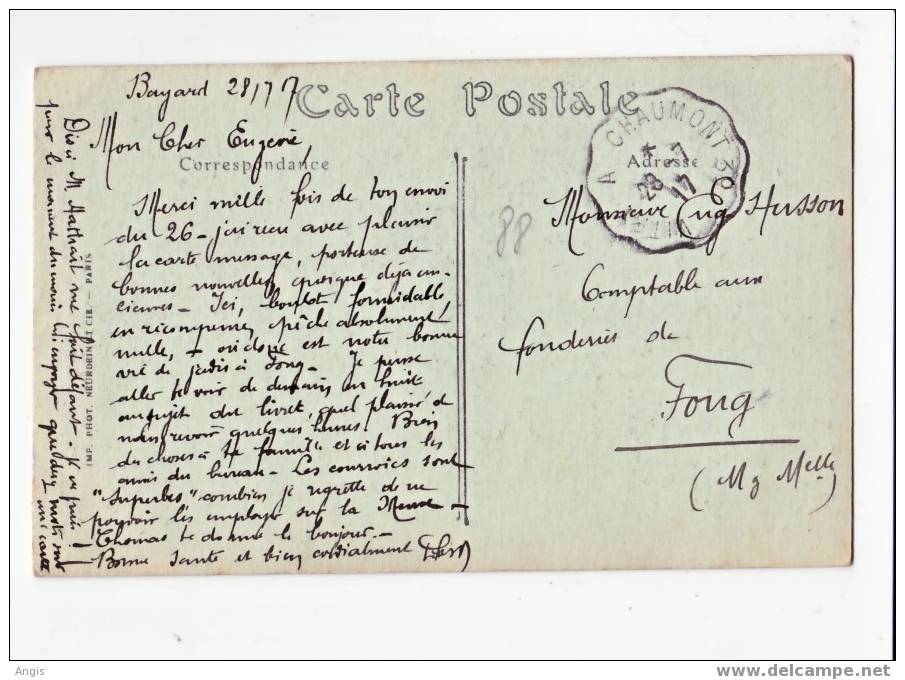 Bayard 28/7 17
Carte Postale
Correspondance
Adresse
A CHAUMONT
28 - 7
17
Mon Cher Eugène,
Merci mille fois de ton envoi
du 26 - jai reçu avec plaisir
la carte message, porteuse de
bonnes nouvelles, quoique déja an-
ciennes - Ici, boulot formidable,
en récompense, pêche absolument
nulle, - où donc est notre bonne
vie de jadis à Foug - Je pense
aller te voir de demain en huit
au sujet du livret, quel plaisir de
nous revoir quelques heures! Bien
des choses à ta famille et à tous les
amis du bureau - Les courroies sont
"superbes" combien je regrette de ne
pouvoir les employer sur la Meuse -
Thomas te donne le bonjour -
Bonne santé et bien cordialement
Dis à M.
pour le moment du moins
carte
IMP. PHOT. NEURDEIN ET CIE. - PARIS
88
Monsieur Eug Husson
Comptable aux
fonderies de
Foug
(M & Melle)
Angis
www.delcampe.net